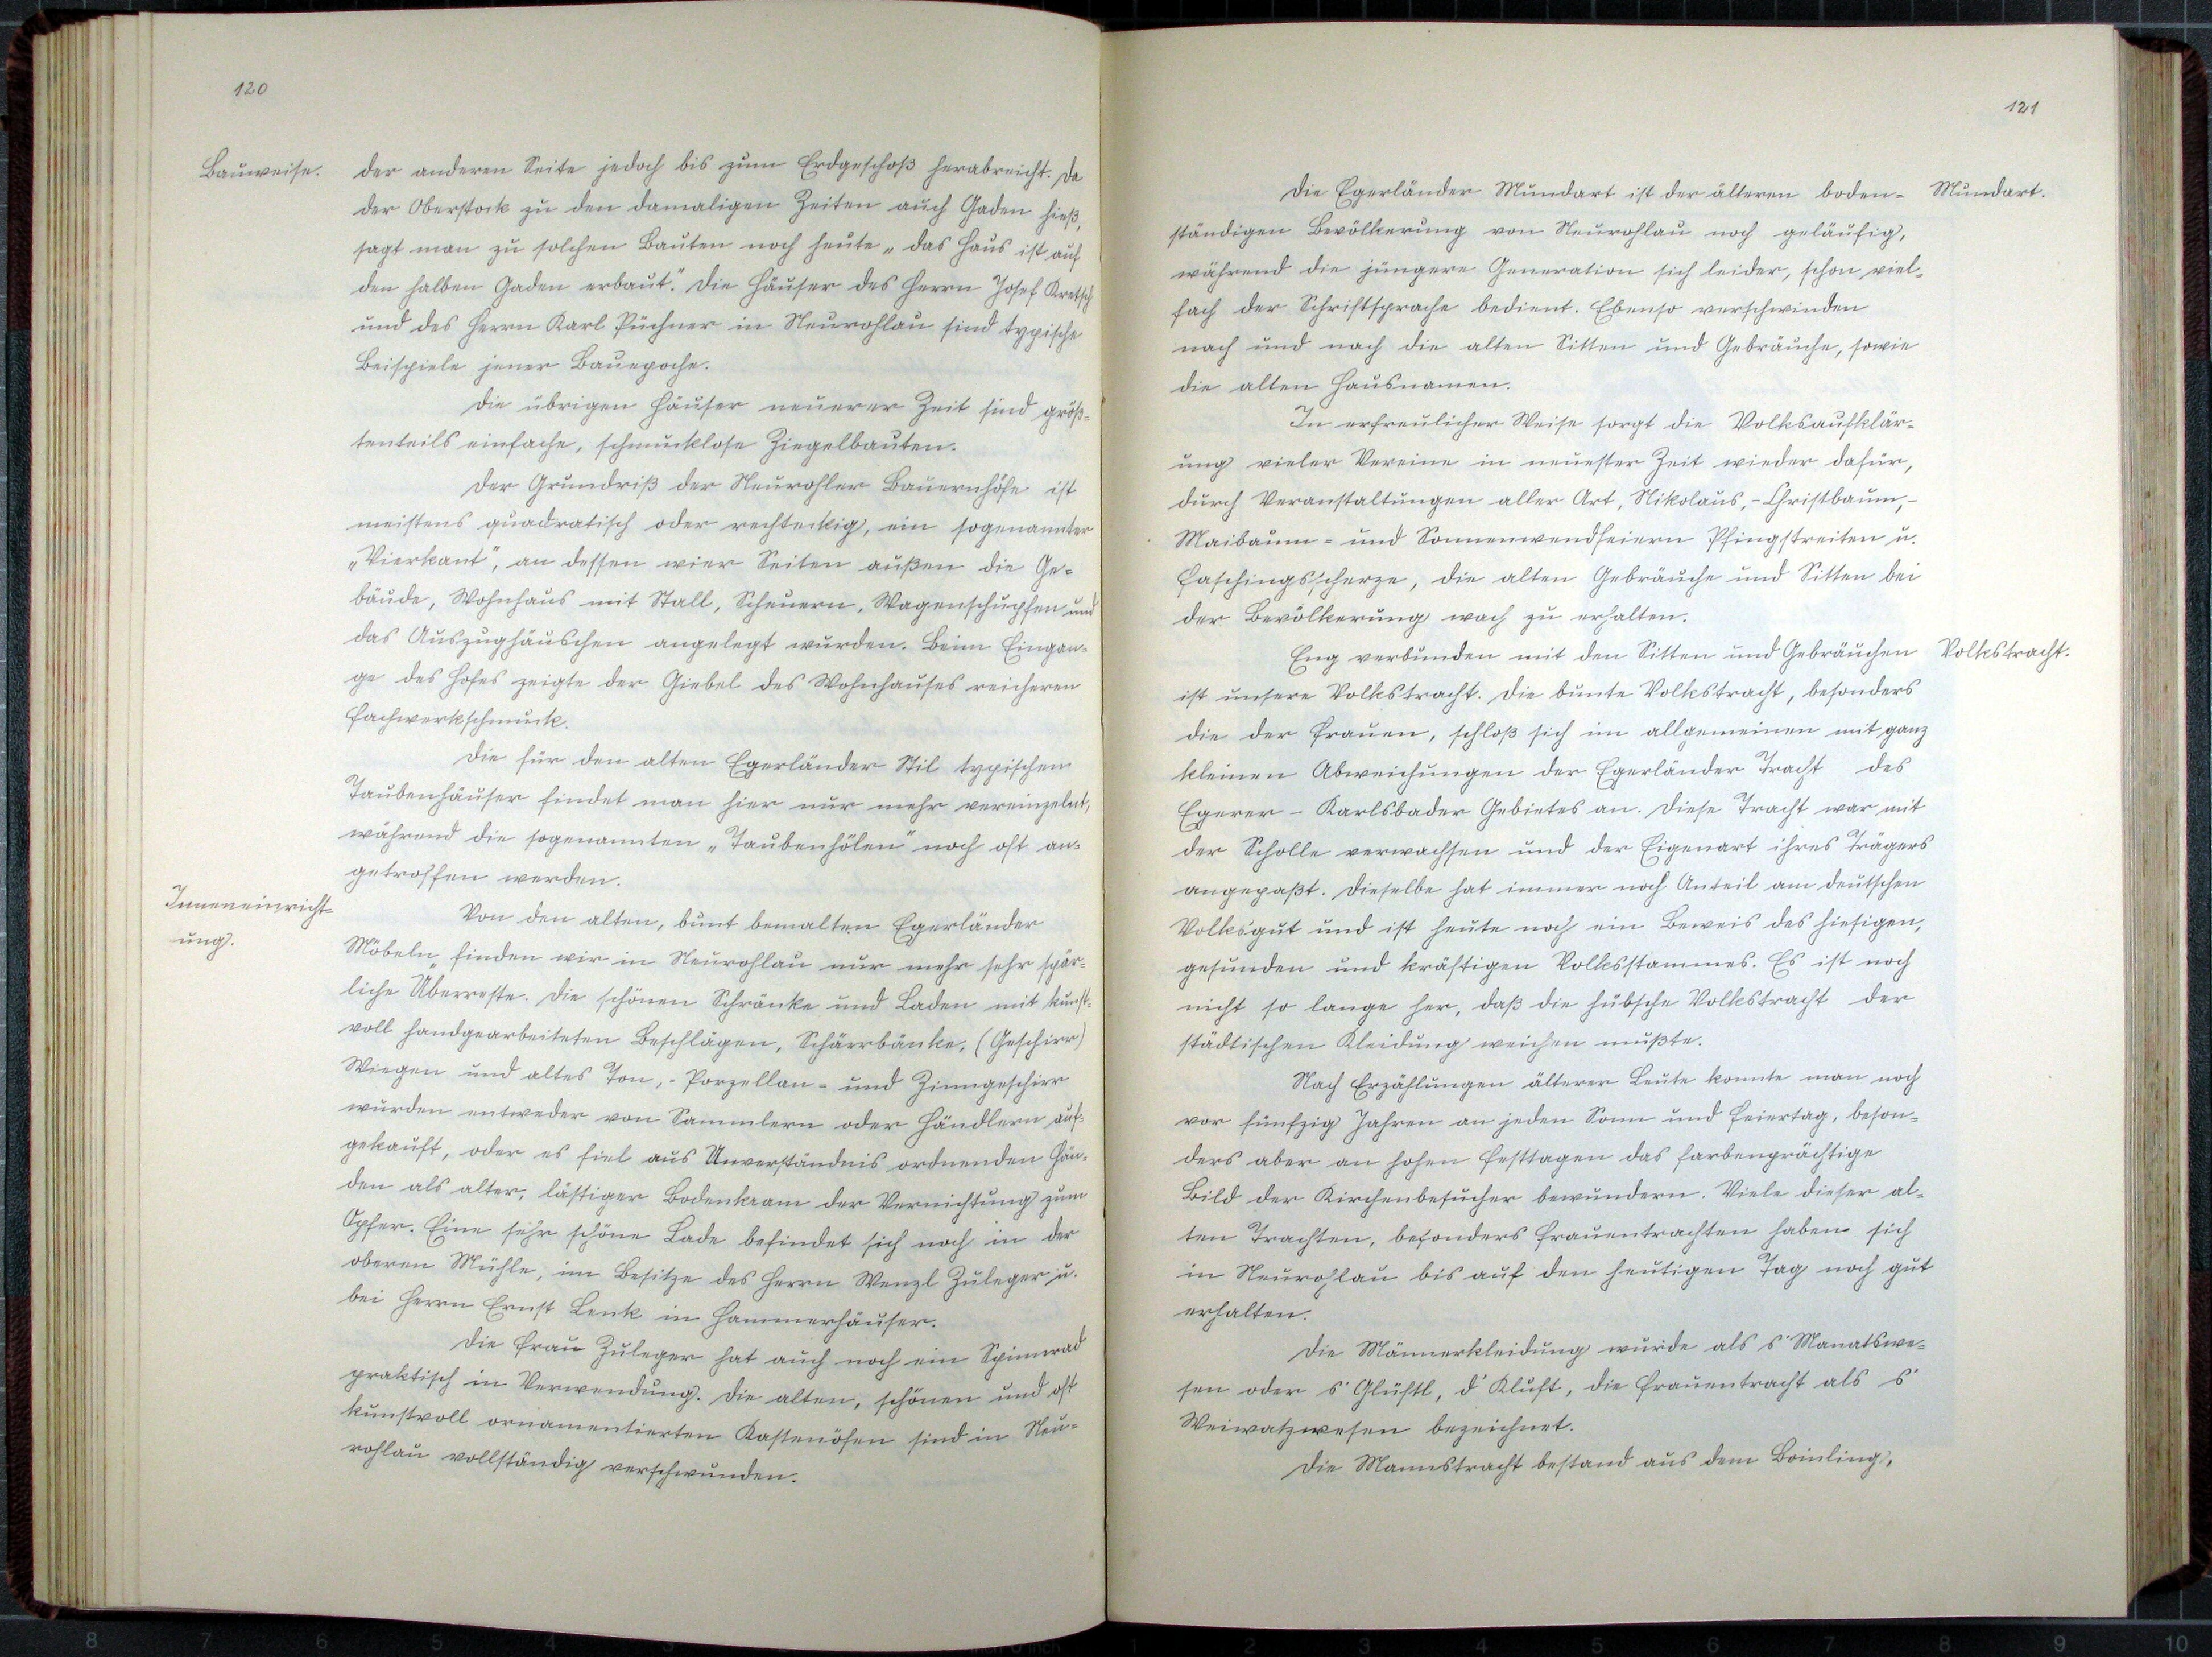 120
Bauweise.
der anderen Seite jedoch bis zum Erdgeschoß herabreicht. Da
der Oberstock zu den damaligen Zeiten auch Gaden hieß,
sagt man zu solchen Bauten noch heute „das Haus ist auf
den halben Gaden erbaut." Die Häuser des Herrn Josef Kretsch
und des Herrn Karl Püchner in Neurohlau sind typische
Beispiele jener Bauepoche.
Die übrigen Häuser neuerer Zeit sind größ-
tenteils einfache, schmucklose Ziegelbauten.
Der Grundriß der Neurohler Bauernhöfe ist
meistens quadratisch oder rechteckig, ein sogenannter
„Vierkant", an dessen vier Seiten außen die Ge-
bäude, Wohnhaus mit Stall, Scheuern, Wagenschupfen und
das Auszughäuschen angelegt wurden. Beim Eingan-
ge des Hofes zeigte der Giebel des Wohnhauses reicheren
Fachwerkschmuck.
Die für den alten Egerländer Stil typischen
Taubenhäuser findet man hier nur mehr vereinzelnt,
während die sogenannten „Taubenhölen" noch oft an-
getroffen werden.
Inneneinricht-
ung.
Von den alten, bunt bemalten Egerländer
Möbeln finden wir in Neurohlau nur mehr sehr spär-
liche Überreste. Die schönen Schränke und Laden mit kunst-
voll handgearbeiteten Beschlägen, Schärrbänke, (Geschirr)
Wiegen und altes Ton,- Porzellan- und Zinngeschirr
wurden entweder von Sammlern oder Händlern auf-
gekauft, oder es fiel aus Unverständnis ordnenden Hän-
den als alter, lästiger Bodenkram der Vernichtung zum
Opfer. Eine sehr schöne Lade befindet sich noch in der
oberen Mühle, im Besitze des Herrn Wenzl Zuleger u.
bei Herrn Ernst Lenk in Hammerhäuser.
Die Frau Zuleger hat auch noch ein Spinnrad
praktisch in Verwendung. Die alten, schönen und oft
kunstvoll ornamentierten Kastenöfen sind in Neu-
rohlau vollständig verschwunden.
121
Die Egerländer Mundart ist der älteren boden-
Mundart.
ständigen Bevölkerung von Neurohlau noch geläufig,
während die jüngere Generation sich leider, schon viel-
fach der Schriftsprache bedient. Ebenso verschwinden
nach und nach die alten Sitten und Gebräuche, sowie
die alten Hausnamen.
In erfreulicher Weise sorgt die Volksaufklär-
ung vieler Vereine in neuester Zeit wieder dafür,
durch Veranstaltungen aller Art, Nikolaus,- Christbaum,-
Maibaum- und Sonnenwendfeiern Pfingstreiten u.
Faschingsscherze, die alten Gebräuche und Sitten bei
der Bevölkerung wach zu erhalten.
Eng verbunden mit den Sitten und Gebräuchen
Volkstracht.
ist unsere Volkstracht. Die bunte Volkstracht, besonders
die der Frauen, schloß sich im allgemeinen mit ganz
kleinen Abweichungen der Egerländer Tracht des
Egerer - Karlsbader Gebietes an. Diese Tracht war mit
der Scholle verwachsen und der Eigenart ihres Trägers
angepaßt. Dieselbe hat immer noch Anteil am deutschen
Volksgut und ist heute noch ein Beweis des hiesigen,
gesunden und kräftigen Volksstammes. Es ist noch
nicht so lange her, daß die hübsche Volkstracht der
städtischen Kleidung weichen mußte.
Nach Erzählungen älterer Leute konnte man noch
vor fünfzig Jahren an jeden Sonn und Feiertag, beson-
ders aber an hohen Festtagen das farbenprächtige
Bild der Kirchenbesucher bewundern. Viele dieser al-
ten Trachten, besonders Frauentrachten haben sich
in Neurohlau bis auf den heutigen Tag noch gut
erhalten.
Die Männerkleidung wurde als s' Manatswe-
sen oder s' Glüftl, d' Kluft, die Frauentracht als s'
Weiwatzwesen bezeichnet.
Die Mannstracht bestand aus dem Boinling,
8 7 6 5 4 3 1 2 3 4 5 6 7 8 9 10